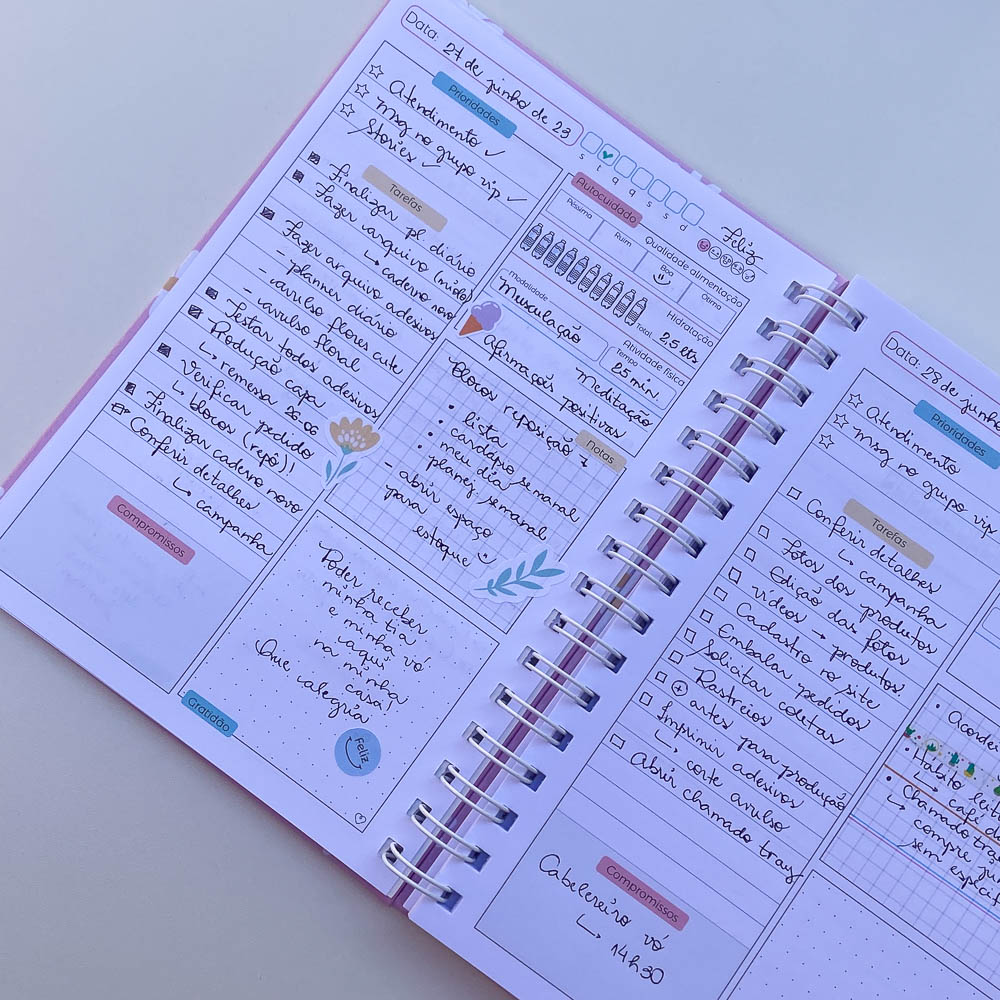 Data: 27 de junho de 23
s t q q s s d
Prioridades
Atendimento ✓
Msg no grupo vip ✓
Stories ✓
Tarefas
Finalizar pl. diário
Fazer arquivo (miolo)
↳ caderno novo
Fazer arquivo adesivos
- planner diário
- avulso flores cute
- avulso floral
Testar todos adesivos
Produção capa
↳ remessa 26.06
Verificar pedido
↳ blocos (repô)!
Finalizar caderno novo
Conferir detalhes
↳ campanha
Compromissos
Autocuidado
Feliz
Qualidade alimentação
Péssima
Ruim
Boa
Ótima
Hidratação
Total: 2,5 lts
Atividade física
Modalidade
Musculação
Tempo
25 min
Meditação
Afirmações positivas
Notas
Blocos reposição
• lista
• cardápio semanal
• meu dia
• planej. semanal
- abrir espaço
para novo
estoque
Poder receber
minha tia
e minha vó
aqui
na minha
casa!
Que alegria
Gratidão
Feliz
Data: 28 de junho
Prioridades
Atendimento
Msg no grupo vip
Tarefas
Conferir detalhes
↳ campanha
Fotos dos produtos
Edição das fotos
vídeos → produtos
Cadastro no site
Embalar pedidos
Solicitar coletas
+ Rastreios
artes para produção
Imprimir adesivos
↳ corte avulso
Abrir chamado tray
Compromissos
Cabeleireiro vó
↳ 14h30
• Hábito
↳ café
• Chamado
↳ compre
sem